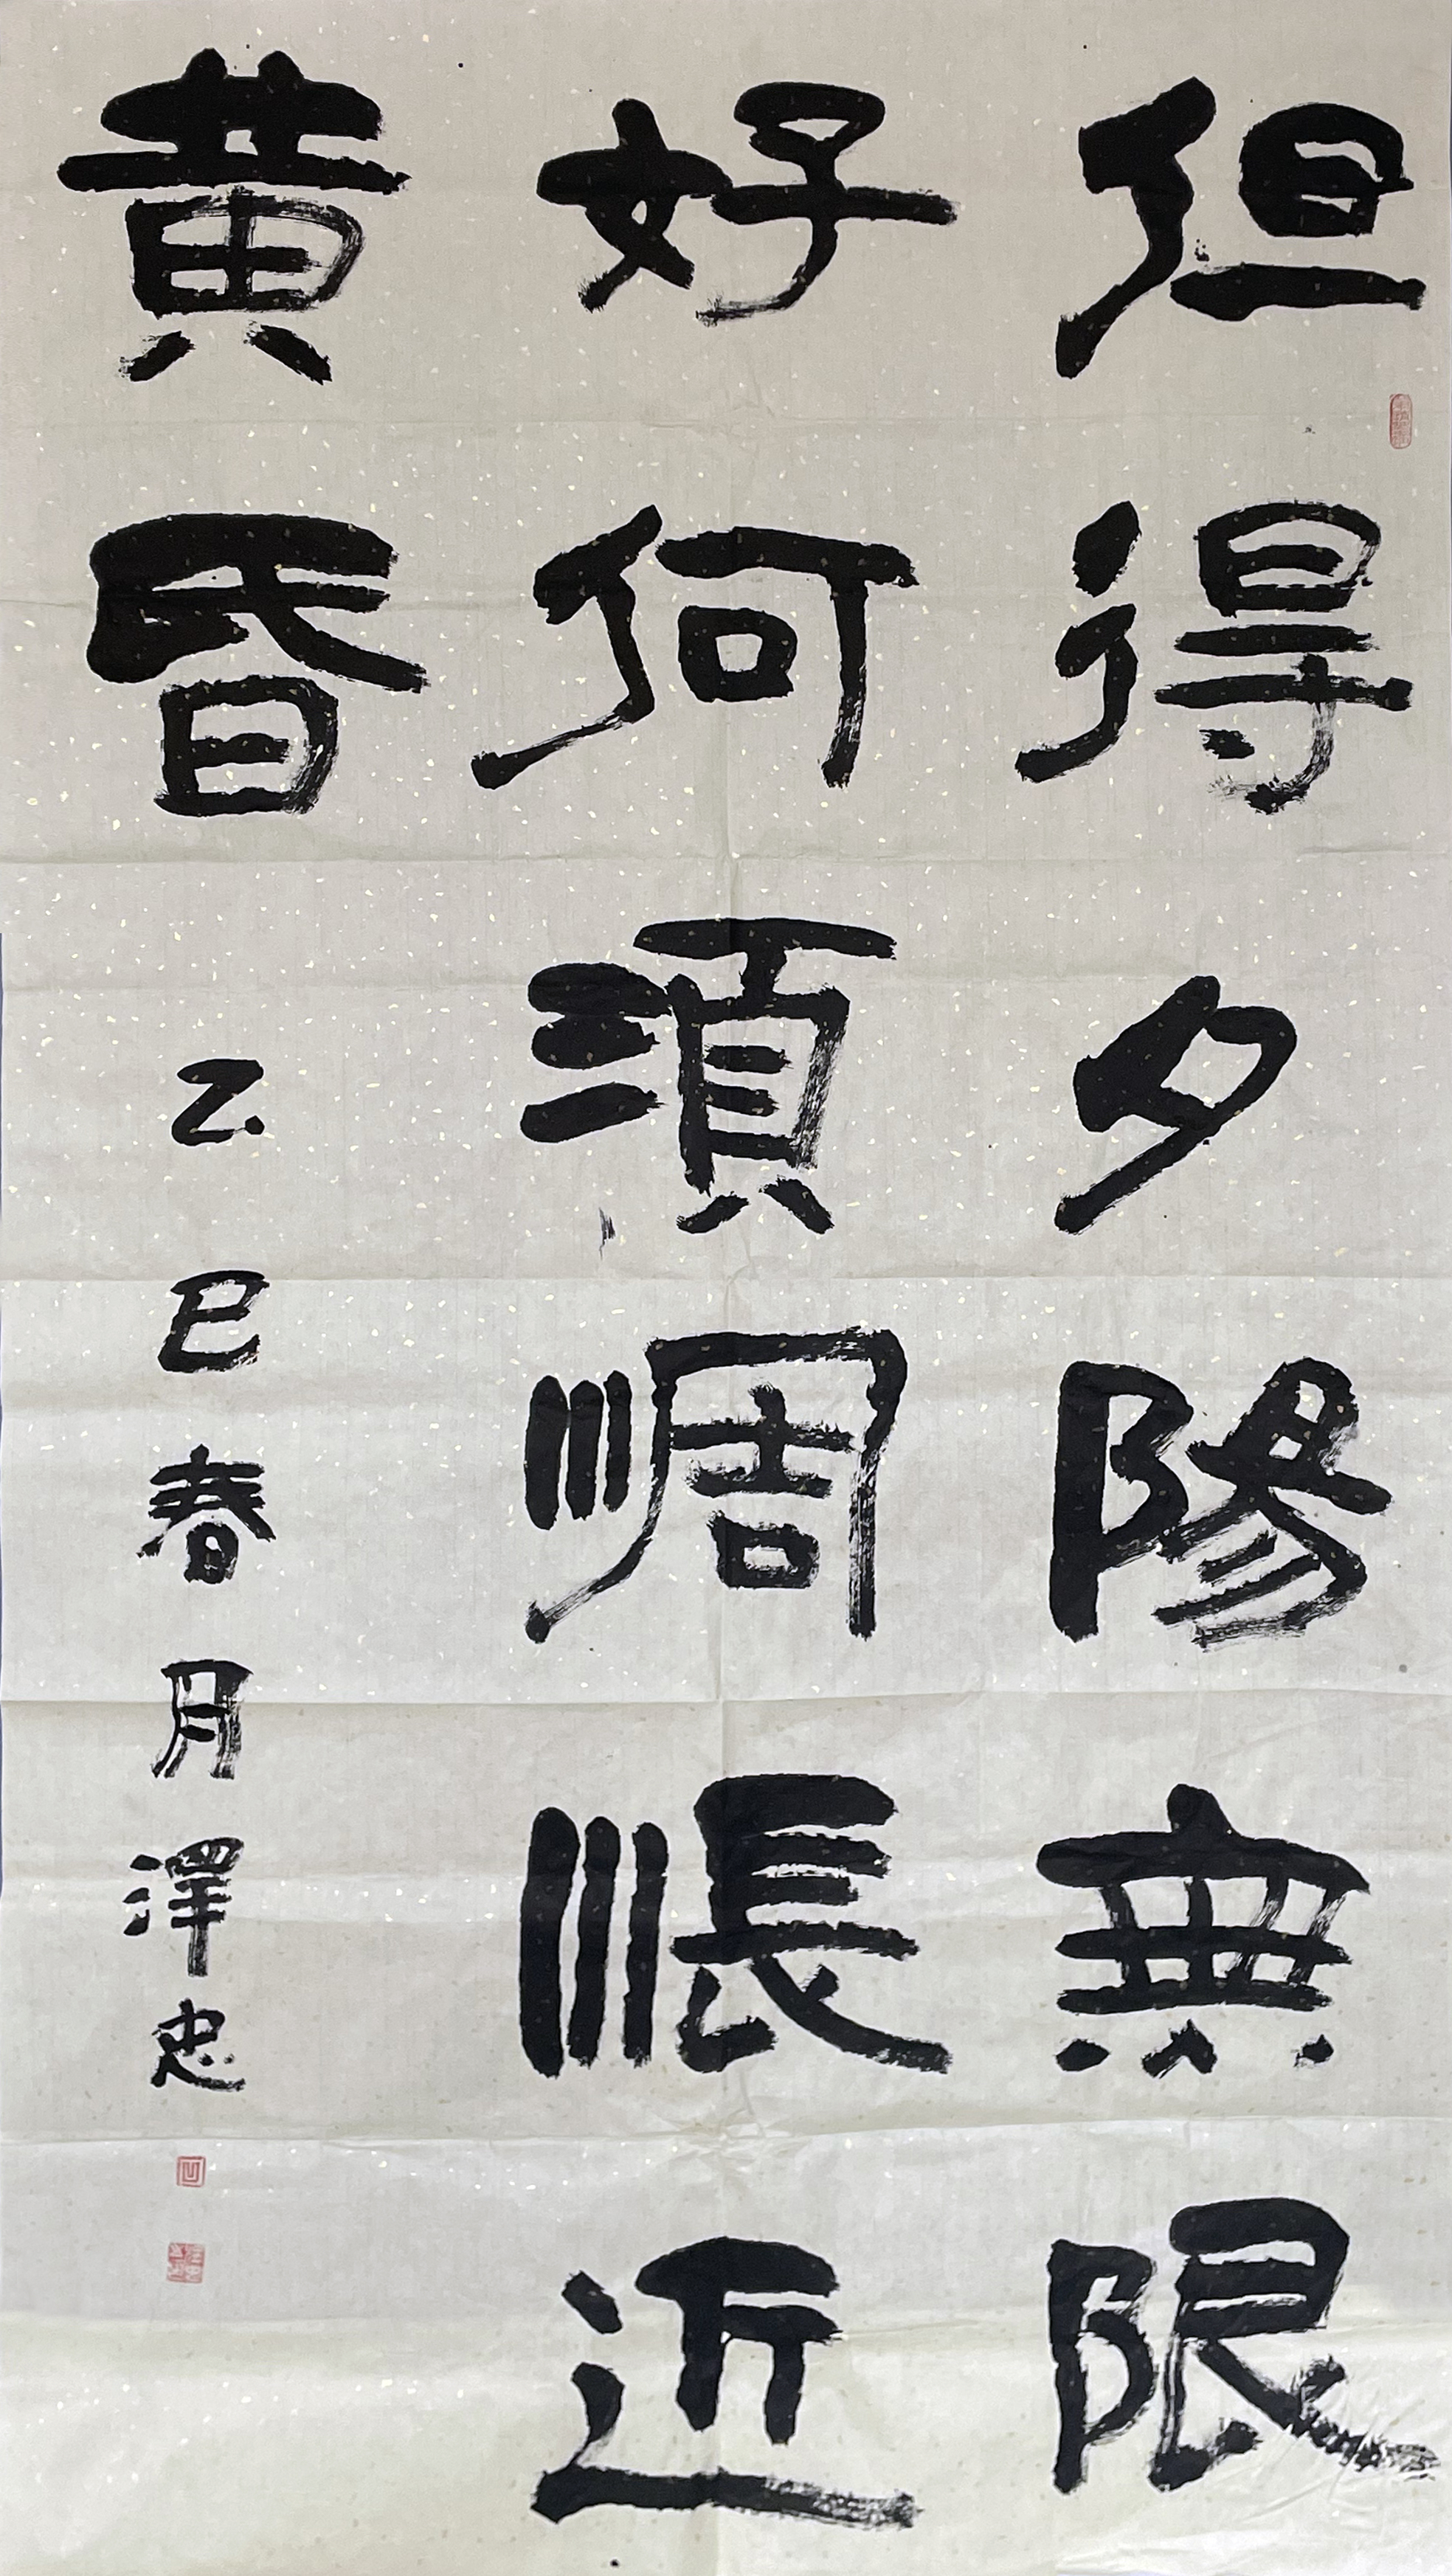 但得夕陽無限
好何須惆悵近
黃昏
乙巳春月澤忠